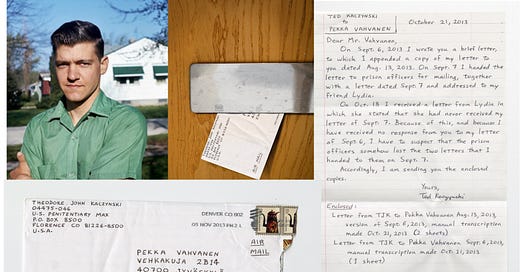 TED KACZYNSKI
to
PEKKA VAHVANEN
October 21, 2013
Dear Mr. Vahvanen,
On Sept. 6, 2013 I wrote you a brief letter,
to which I appended a copy of my letter to
you dated Aug. 13, 2013. On Sept. 7 I handed the
letter to prison officers for mailing, together
with a letter dated Sept. 7 and addressed to my
friend Lydia.
On Oct. 18 I received a letter from Lydia in
which she stated that she had never received my
letter of Sept. 7. Because of this, and because I
have received no response from you to my letter
of Sept. 6, I have to suspect that the prison
officers somehow lost the two letters that I
handed to them on Sept. 7.
Accordingly, I am sending you the enclosed
copies.
Yours,
Ted Kaczynski
Enclosed:
Letter from TJK to Pekka Vahvanen Aug. 13, 2013,
version of Sept. 6, 2013; manual transcription
made Oct. 21, 2013 (2 sheets)
Letter from TJK to Pekka Vahvanen Sept. 6, 2013,
manual transcription made Oct. 21, 2013
(1 sheet)
THEODORE JOHN KACZYNSKI
04475-046
U.S. PENITENTIARY MAX
P.O. BOX 8500
FLORENCE CO 81226-8500
U.S.A.
DENVER CO 802
05 NOV 2013 PM 2 L
AIR
MAIL
PEKKA VAHVANEN
VEHKAKUJA 2B14
40700